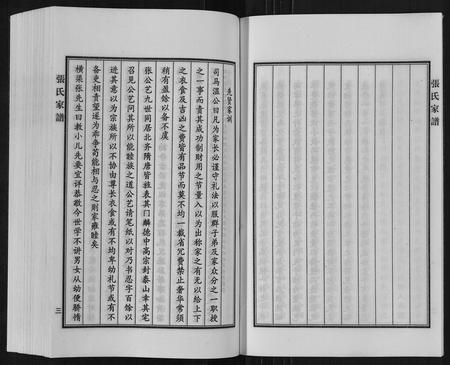 張氏家譜
先贤家训
司马温公曰凡为家长必谨守礼法以服群子弟及家众分之一职授
之一事而责其成功制财用之节量入以为出称家之有无以给上下
之衣食及吉凶之费皆有品节而莫不均一裁省冗费禁止奢华常须
稍有盈馀以备不虞
张公艺九世同居北齐隋唐皆旌表其门麟德中高宗封泰山幸其宅
召见公艺问其所以能睦族之道公艺请笔纸以对乃书忍字百馀以
进其意以为宗族所以不协由尊长衣食或有不均卑幼礼节或有不
备更相责望遂为乖争苟能相与忍之则家雍睦矣
横渠张先生曰教小儿先要安详恭敬今世学不讲男女从幼便骄惰
張氏家譜
三